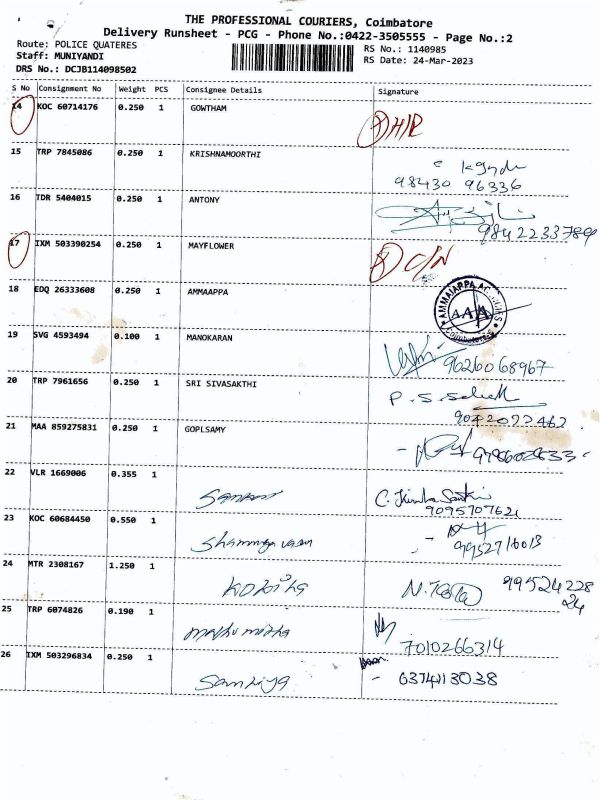 THE PROFESSIONAL COURIERS, Coimbatore
Delivery Runsheet - PCG - Phone No.:0422-3505555 - Page No.:2
Route: POLICE QUATERES
RS No.: 1140985
Staff: MUNIYANDI
RS Date: 24-Mar-2023
DRS No.: DCJB114098502
S No Consignment No Weight PCS Consignee Details Signature
14 KOC 60714176 0.250 1 GOWTHAM
15 TRP 7845086 0.250 1 KRISHNAMOORTHI
98430 96336
16 TDR 5404015 0.250 1 ANTONY
9842233789
17 IXM 503390254 0.250 1 MAYFLOWER
18 EDQ 26333608 0.250 1 AMMAAPPA
AAA
19 SVG 4593494 0.100 1 MANOKARAN
9626068967
20 TRP 7961656 0.250 1 SRI SIVASAKTHI
P. S.
21 MAA 859275831 0.250 1 GOPLSAMY
22 VLR 1669006 0.355 1
9095707621
23 KOC 60684450 0.550 1
24 MTR 2308167 1.250 1
99524228
24
25 TRP 6074826 0.190 1
7010266314
26 IXM 503296834 0.250 1
Samiya
6374113038